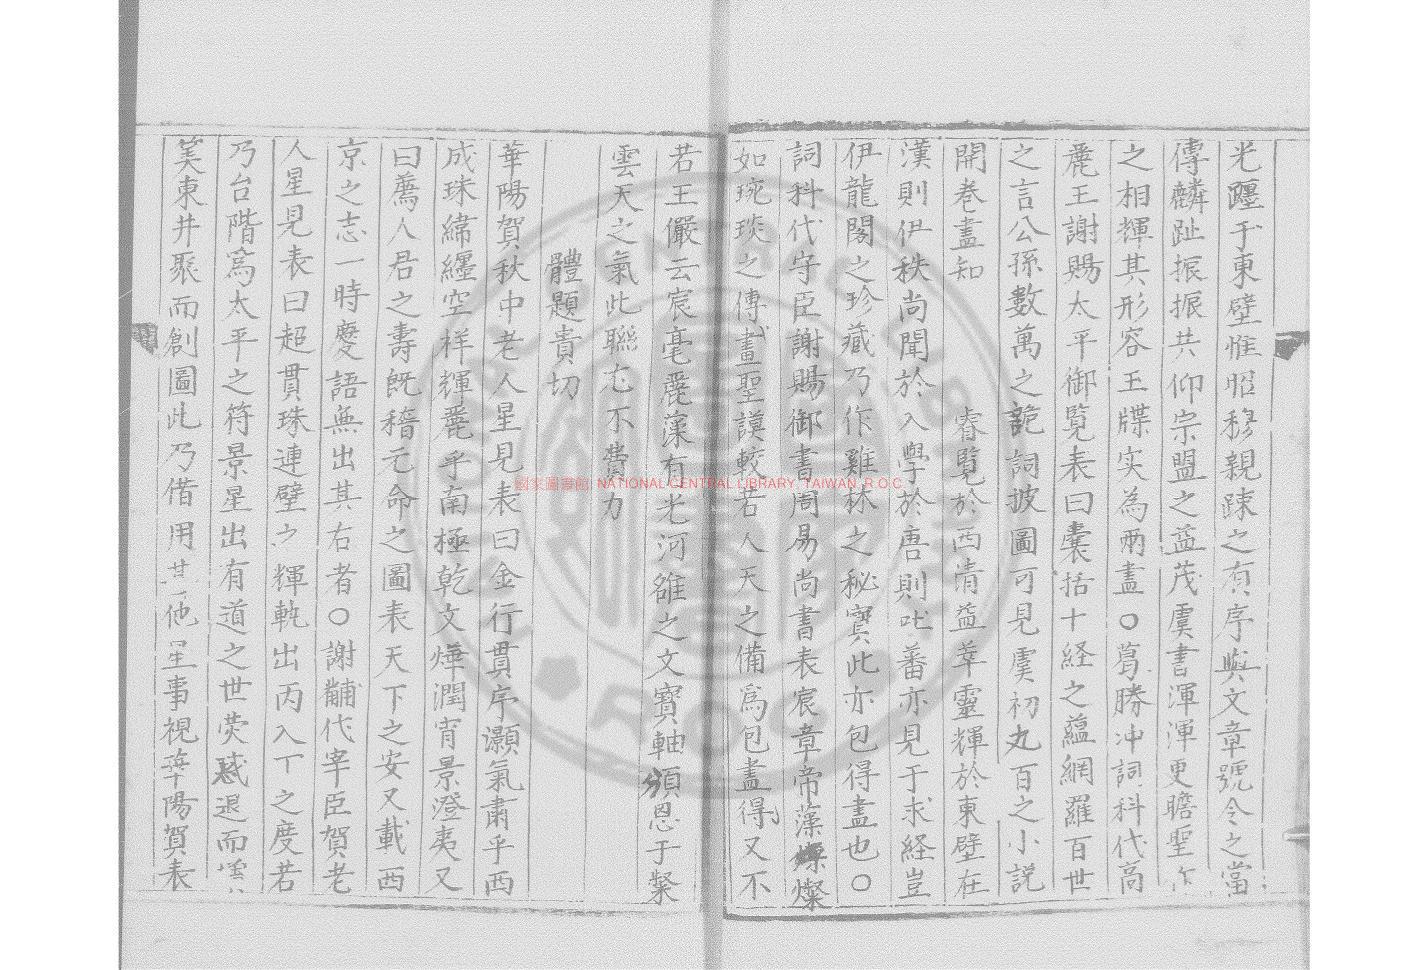 光躔于東壁惟昭穆親疎之有序與文章號令之當
傳麟趾振振共仰宗盟之益茂虞書渾渾更瞻聖作
之相輝其形容玉牒实為兩盡○葛勝冲詞科代高
麗王謝賜太平御覧表曰囊括十経之蘊網羅百世
之言公孫數萬之詭詞披圖可見虞初九百之小說
開卷盡知 睿覧於西清益萃靈輝於東壁在
漢則伊秩尚聞於入學於唐則吐蕃亦見于求経豈
伊龍閣之珍藏乃作雞林之秘寶此亦包得盡也○
詞科代守臣謝賜御書周易尚書表宸章帝藻燦
如琬琰之傳盡聖謨較若人天之備為包盡得又不
若王儼云宸毫麗藻有光河雒之文寶軸頒恩于槩
雲天之氣此聯尤不費力
體題貴切
華陽賀秋中老人星見表曰金行貫序灝氣肅乎西
成珠緯纒空祥輝麗乎南極乾文燁潤宵景澄夷又
曰薦人君之壽既稽元命之圖表天下之安又載西
京之志一時慶語無出其右者○謝黼代宰臣賀老
人星見表曰超貫珠連璧之輝軌出丙入丁之度若
乃台階為太平之符景星出有道之世熒惑退而
美東井聚而創圖此乃借用其他星事視華陽賀表
國家圖書館 NATIONAL CENTRAL LIBRARY, TAIWAN, R.O.C